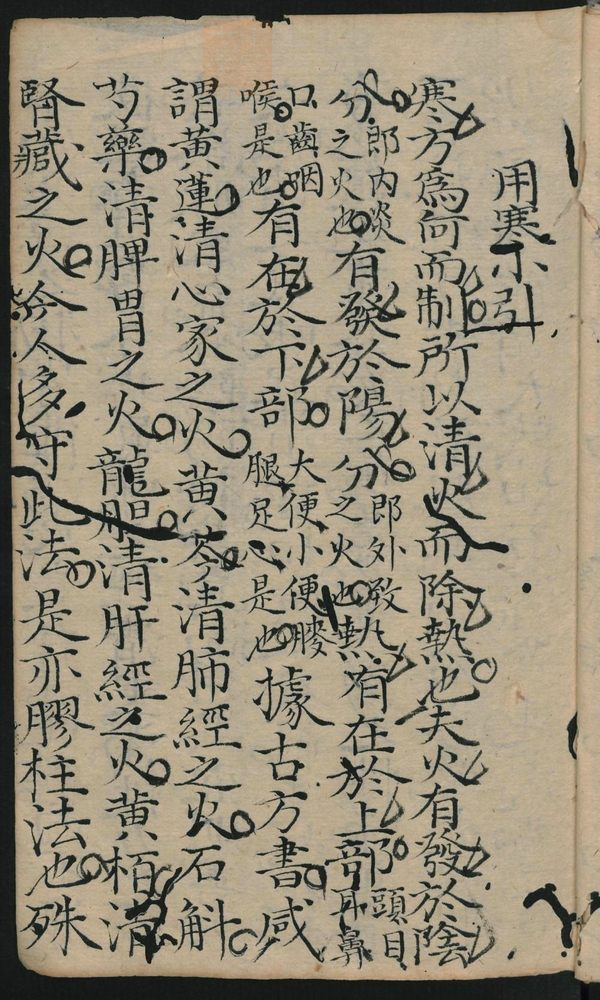 用寒小引
寒方爲何而制所以清火而除熱也夫火有發於陰
分即内炎之火也有發於陽分即外致之火也熱有在於上部頭目耳鼻
口齒咽喉是也有在於下部大便小便腰腿足心是也據古方書咸
謂黄蓮清心家之火黄芩清肺經之火石斛
芍藥清脾胃之火龍胆清肝經之火黄栢清
腎藏之火今人多守此法是亦膠柱法也殊